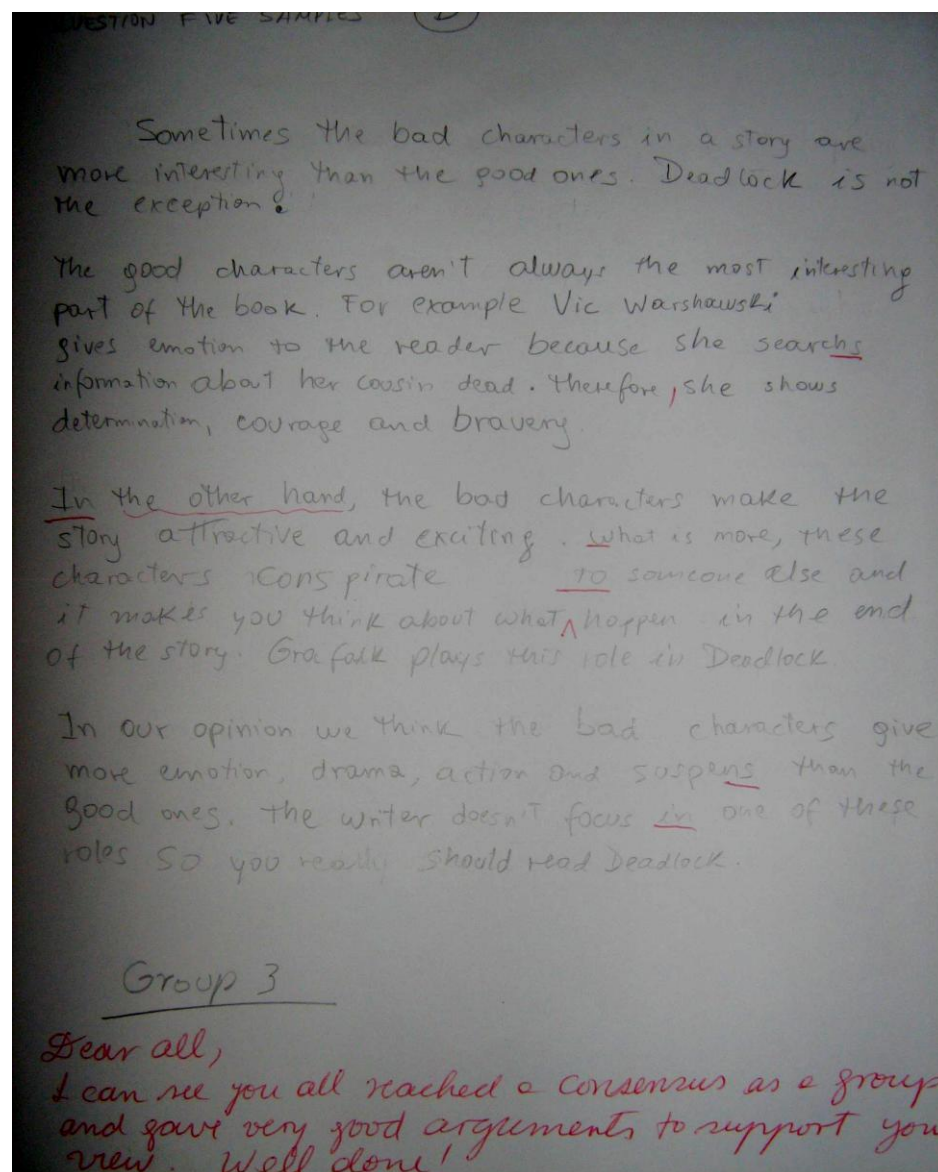 QUESTION FIVE SAMPLES
Sometimes the bad characters in a story are
more interesting than the good ones. Deadlock is not
the exception.
The good characters aren't always the most interesting
part of the book. For example Vic Warshawski
gives emotion to the reader because she searchs
information about her cousin dead. therefore, she shows
determination, courage and bravery
In the other hand, the bad characters make the
story attractive and exciting. what is more, these
characters conspirate to someone else and
it makes you think about what happen in the end
of the story. Grafalk plays this role in Deadlock
In our opinion we think the bad characters give
more emotion, drama, action and suspens than the
good ones. the writer doesn't focus in one of these
roles so you really should read Deadlock.
Group 3
Dear all,
I can see you all reached a consensus as a group
and gave very good arguments to support you
view. Well done!